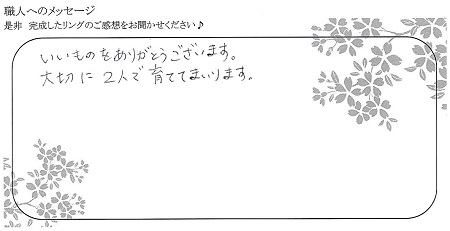 職人へのメッセージ
是非 完成したリングのご感想をお聞かせください♪
いいものをありがとうございます。
大切に 2人で育ててまいります。